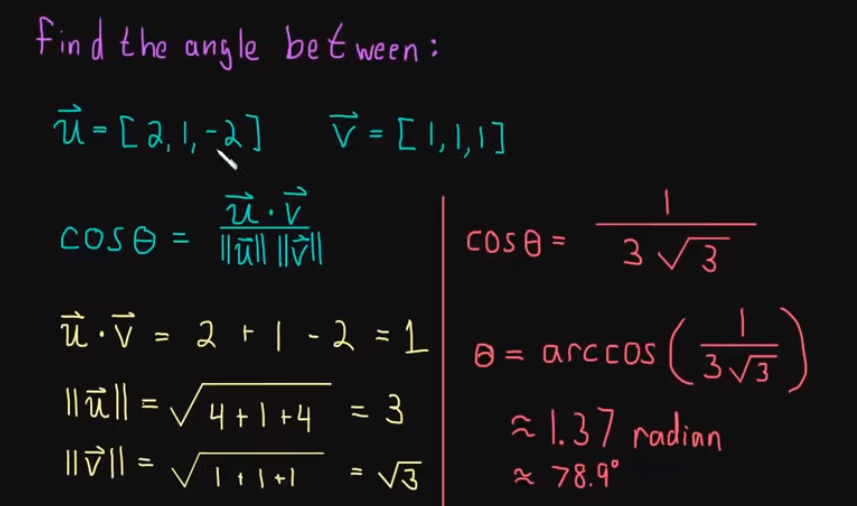 find the angle between:
u⃗ = [2, 1, -2]  v⃗ = [1, 1, 1]
cos θ = (u⃗ · v⃗) / (‖u⃗‖ ‖v⃗‖)
u⃗ · v⃗ = 2 + 1 - 2 = 1
‖u⃗‖ = √(4 + 1 + 4) = 3
‖v⃗‖ = √(1 + 1 + 1) = √3
cos θ = 1 / (3√3)
θ = arccos (1 / (3√3))
≈ 1.37 radian
≈ 78.9°